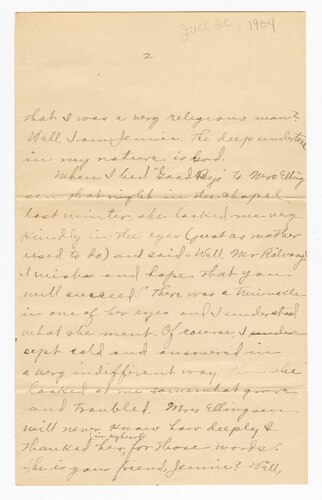 June 26, 1904
2
that I was a very religious man?
Well, I am, Jennie. The deep undertone
in my nature is God.
When I bed "Good bye" to Mrs Elling
sen that night in the chapel
last winter she looked me very
kindly in the eyes (just as mother
used to do) and said "Well Mr Rölvaag
I wish and hope that you
will succeed." There was a
in one of her eyes and I understood
what she ment. Of course, I
cept cold and answered in
a very indifferent way. she
looked at me somewhat grave
and troubled. Mrs Ellingsen
will never know how deeply I
thanked her for those words.
She is your friend, Jennie? Well,